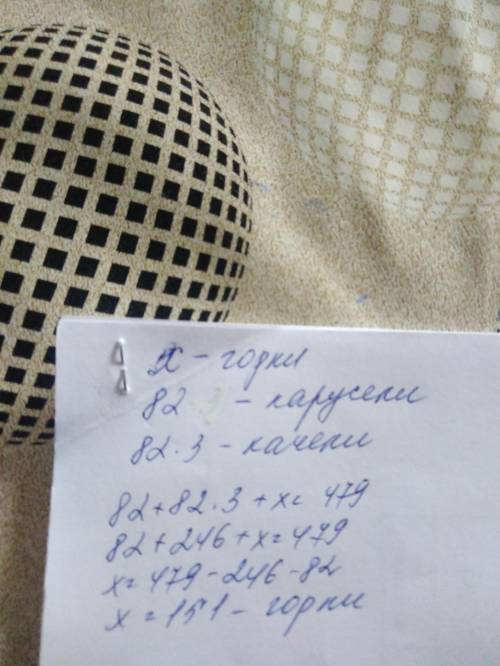 x - горки
82 - карусели
82·3 - качели
82+82·3+x=479
82+246+x=479
x=479-246-82
x=151 - горки